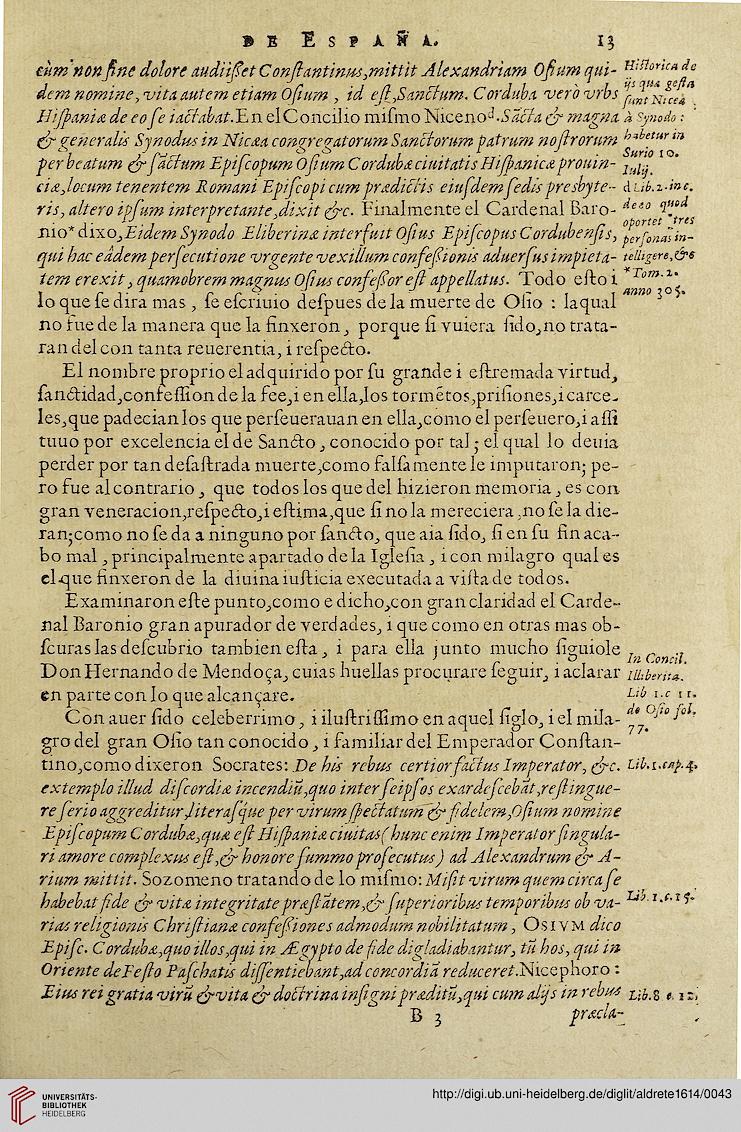 DE ESPAÑA. 13
cùm non sine dolore audiißet Constantinus, mittit Alexandriam Osium qui-
dem nomine, vita autem etiam Osium, id est, Sanctum. Corduba verò vrbs
Hispaniæ de eo se iactabat. En el Concilio mismo Niceno d. Sãcta & magna
& generalis Synodus in Nicæa congregatorum Sanctorum patrum nostrorum
per beatum & sãctum Episcopum Osium Cordubæ ciuitatis Hispanicæ prouin-
ciæ, locum tenentem Romani Episcopi cum prædictis eiusdem sedis presbyte-
ris, altero ipsum interpretante, dixit &c. Finalmente el Cardenal Baro-
nio* dixo, Eidem Synodo Eliberinæ interfuit Osius Episcopus Cordubensis,
qui hac eâdem persecutione vrgente vexillum confeßionis aduersus impieta-
tem erexit, quamobrem magnus Osius confeßor est appellatus. Todo esto i
lo que se dira mas, se escriuio despues de la muerte de Osio : la qual
no fue de la manera que la finxeron, porque si vuiera sido, no trata-
ran del con tanta reuerentia, i respecto.
El nombre proprio el adquirido por su grande i estremada virtud,
sanctidad, confession de la fee, i en ella, los tormẽtos, prisiones, i carce-
les, que padecian los que perseuerauan en ella, como el perseuero, i assi
tuuo por excelencia el de Sancto, conocido por tal; el qual lo deuia
perder por tan desastrada muerte, como falsamente le imputaron; pe-
ro fue al contrario, que todos los que del hizieron memoria, es con
gran veneracion, respecto, i estima, que si no la mereciera, no se la die-
ran; como no se da a ninguno por sancto, que aia sido, si en su fin aca-
bo mal, principalmente apartado de la Iglesia, i con milagro qual es
el que finxeron de la diuina iusticia executada a vista de todos.
Examinaron este punto, como e dicho, con gran claridad el Carde-
nal Baronio gran apurador de verdades, i que como en otras mas ob-
scuras las descubrio tambien esta, i para ella junto mucho siguiole
Don Hernando de Mendoça, cuias huellas procurare seguir, i aclarar
en parte con lo que alcançare.
Con auer sido celeberrimo, i ilustrissimo en aquel siglo, i el mila-
gro del gran Osio tan conocido, i familiar del Emperador Constan-
tino, como dixeron Socrates: De his rebus certior factus Imperator, &c.
extemplo illud discordiæ incendiũ, quo inter seipsos exardescebãt, restingue-
re serio aggreditur, literasque per virum spectatum & fidelem, Osium nomine
Episcopum Cordubæ, quæ est Hispaniæ ciuitas (hunc enim Imperator singula-
ri amore complexus est, & honore summo prosecutus) ad Alexandrum & A-
rium mittit. Sozomeno tratando de lo mismo: Misit virum quem circa se
habebat fide & vitæ integritate præstãtem, & superioribus temporibus ob va-
rias religionis Christianæ confeßiones admodum nobilitatum, OSIVM dico
Episc. Cordubæ, quo illos, qui in Ægypto de fide digladiabantur, tũ hos, qui in
Oriente de Festo Paschatis dissentiebant, ad concordiã reduceret. Nicephoro :
Eius rei gratia virũ & vita & doctrina insigni præditũ, qui cum alijs in rebus
B 3 præcla-
Historica de
ijs quæ gesta
sunt Niceæ
à Synodo :
habetur in
Surio 10.
Iulij.
d Lib. 2. inc.
de eo quod
oportet tres
personas in-
telligere, &c
* Tom. 2.
anno 305.
In Concil.
Illiberita.
Lib 1. c 11.
de Osio fol.
77.
Lib. 1. cap. 4.
Lib. 1. c. 15.
Lib. 8 c. 12.
UNIVERSITÄTS-
BIBLIOTHEK
HEIDELBERG
http://digi.ub.uni-heidelberg.de/diglit/aldrete1614/0043